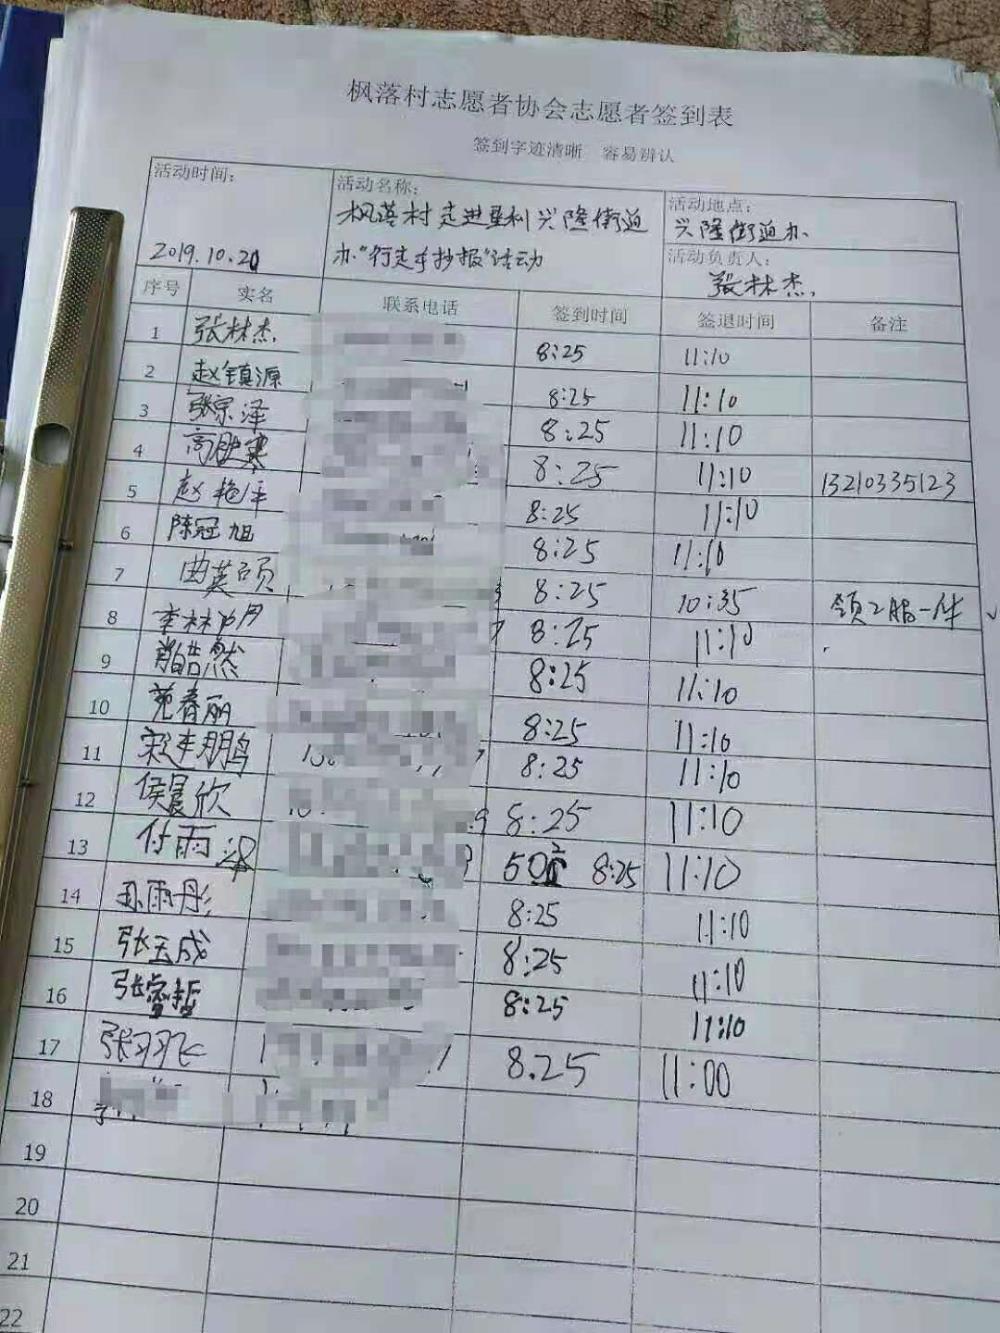 枫落村志愿者协会志愿者签到表
签到字迹清晰 容易辨认
活动时间: 2019.10.20
活动名称: 枫落村走进垦利兴隆街道
办"行走手抄报"活动
活动地点: 兴隆街道办
活动负责人: 张林杰.
序号 实名 联系电话 签到时间 签退时间 备注
1 张林杰. 8:25 11:10
2 赵镇源 8:25 11:10
3 张宗泽 8:25 11:10
4 高 寒 8:25 11:10 13210335123
5 赵艳萍 8:25 11:10
6 陈冠旭 8:25 11:10
7 曲英硕 8:25 10:35 领2服一件
8 李林 8:25 11:10
9 肖皓然 8:25 11:10
10 范春丽 8:25 11:10
11 宋建鹏 8:25 11:10
12 侯晨欣 8:25 11:10
13 付雨 8:25 11:10
14 孙雨彤 8:25 11:10
15 张玉成 8:25 11:10
16 张睿哲 8:25 11:10
17 张羽飞 8.25 11:00
18
19
20
21
22